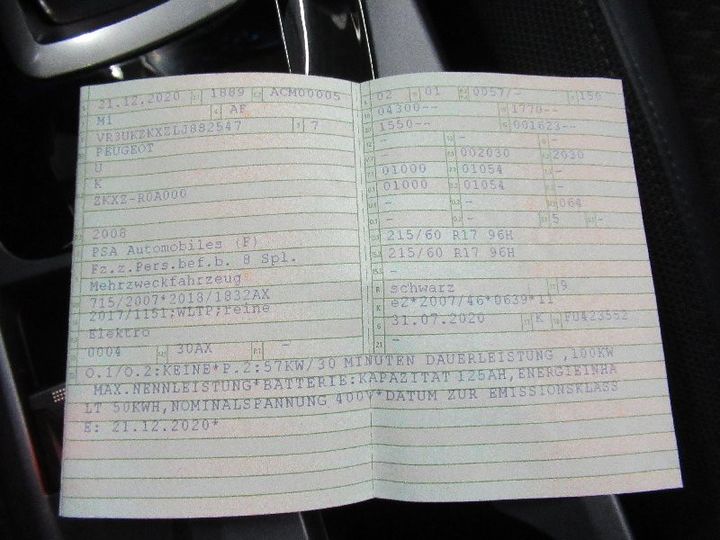 21.12.2020 1889 ACM00005
M1 AF
VR3UKZKXZLJ882547 7
PEUGEOT
U
K
ZKXZ-R0A000
2008
PSA Automobiles (F)
Fz.z.Pers.bef.b. 8 Spl.
Mehrzweckfahrzeug
715/2007*2018/1832AX
2017/1151;WLTP;reine
Elektro
0004 30AX -
02 01 0057/- 150
04300-- 1770--
1550-- 001623--
- - -
- 002030 2030
01000 01054 -
01000 01054 -
- - 064
- - 5 -
215/60 R17 96H
215/60 R17 96H
-
schwarz 9
e2*2007/46*0639*11
31.07.2020 K F0423552
-
O.1/O.2:KEINE*P.2:57KW/30 MINUTEN DAUERLEISTUNG ,100KW
MAX.NENNLEISTUNG*BATTERIE:KAPAZITAT 125AH,ENERGIEINHA
LT 50KWH,NOMINALSPANNUNG 400V*DATUM ZUR EMISSIONSKLASS
E: 21.12.2020*